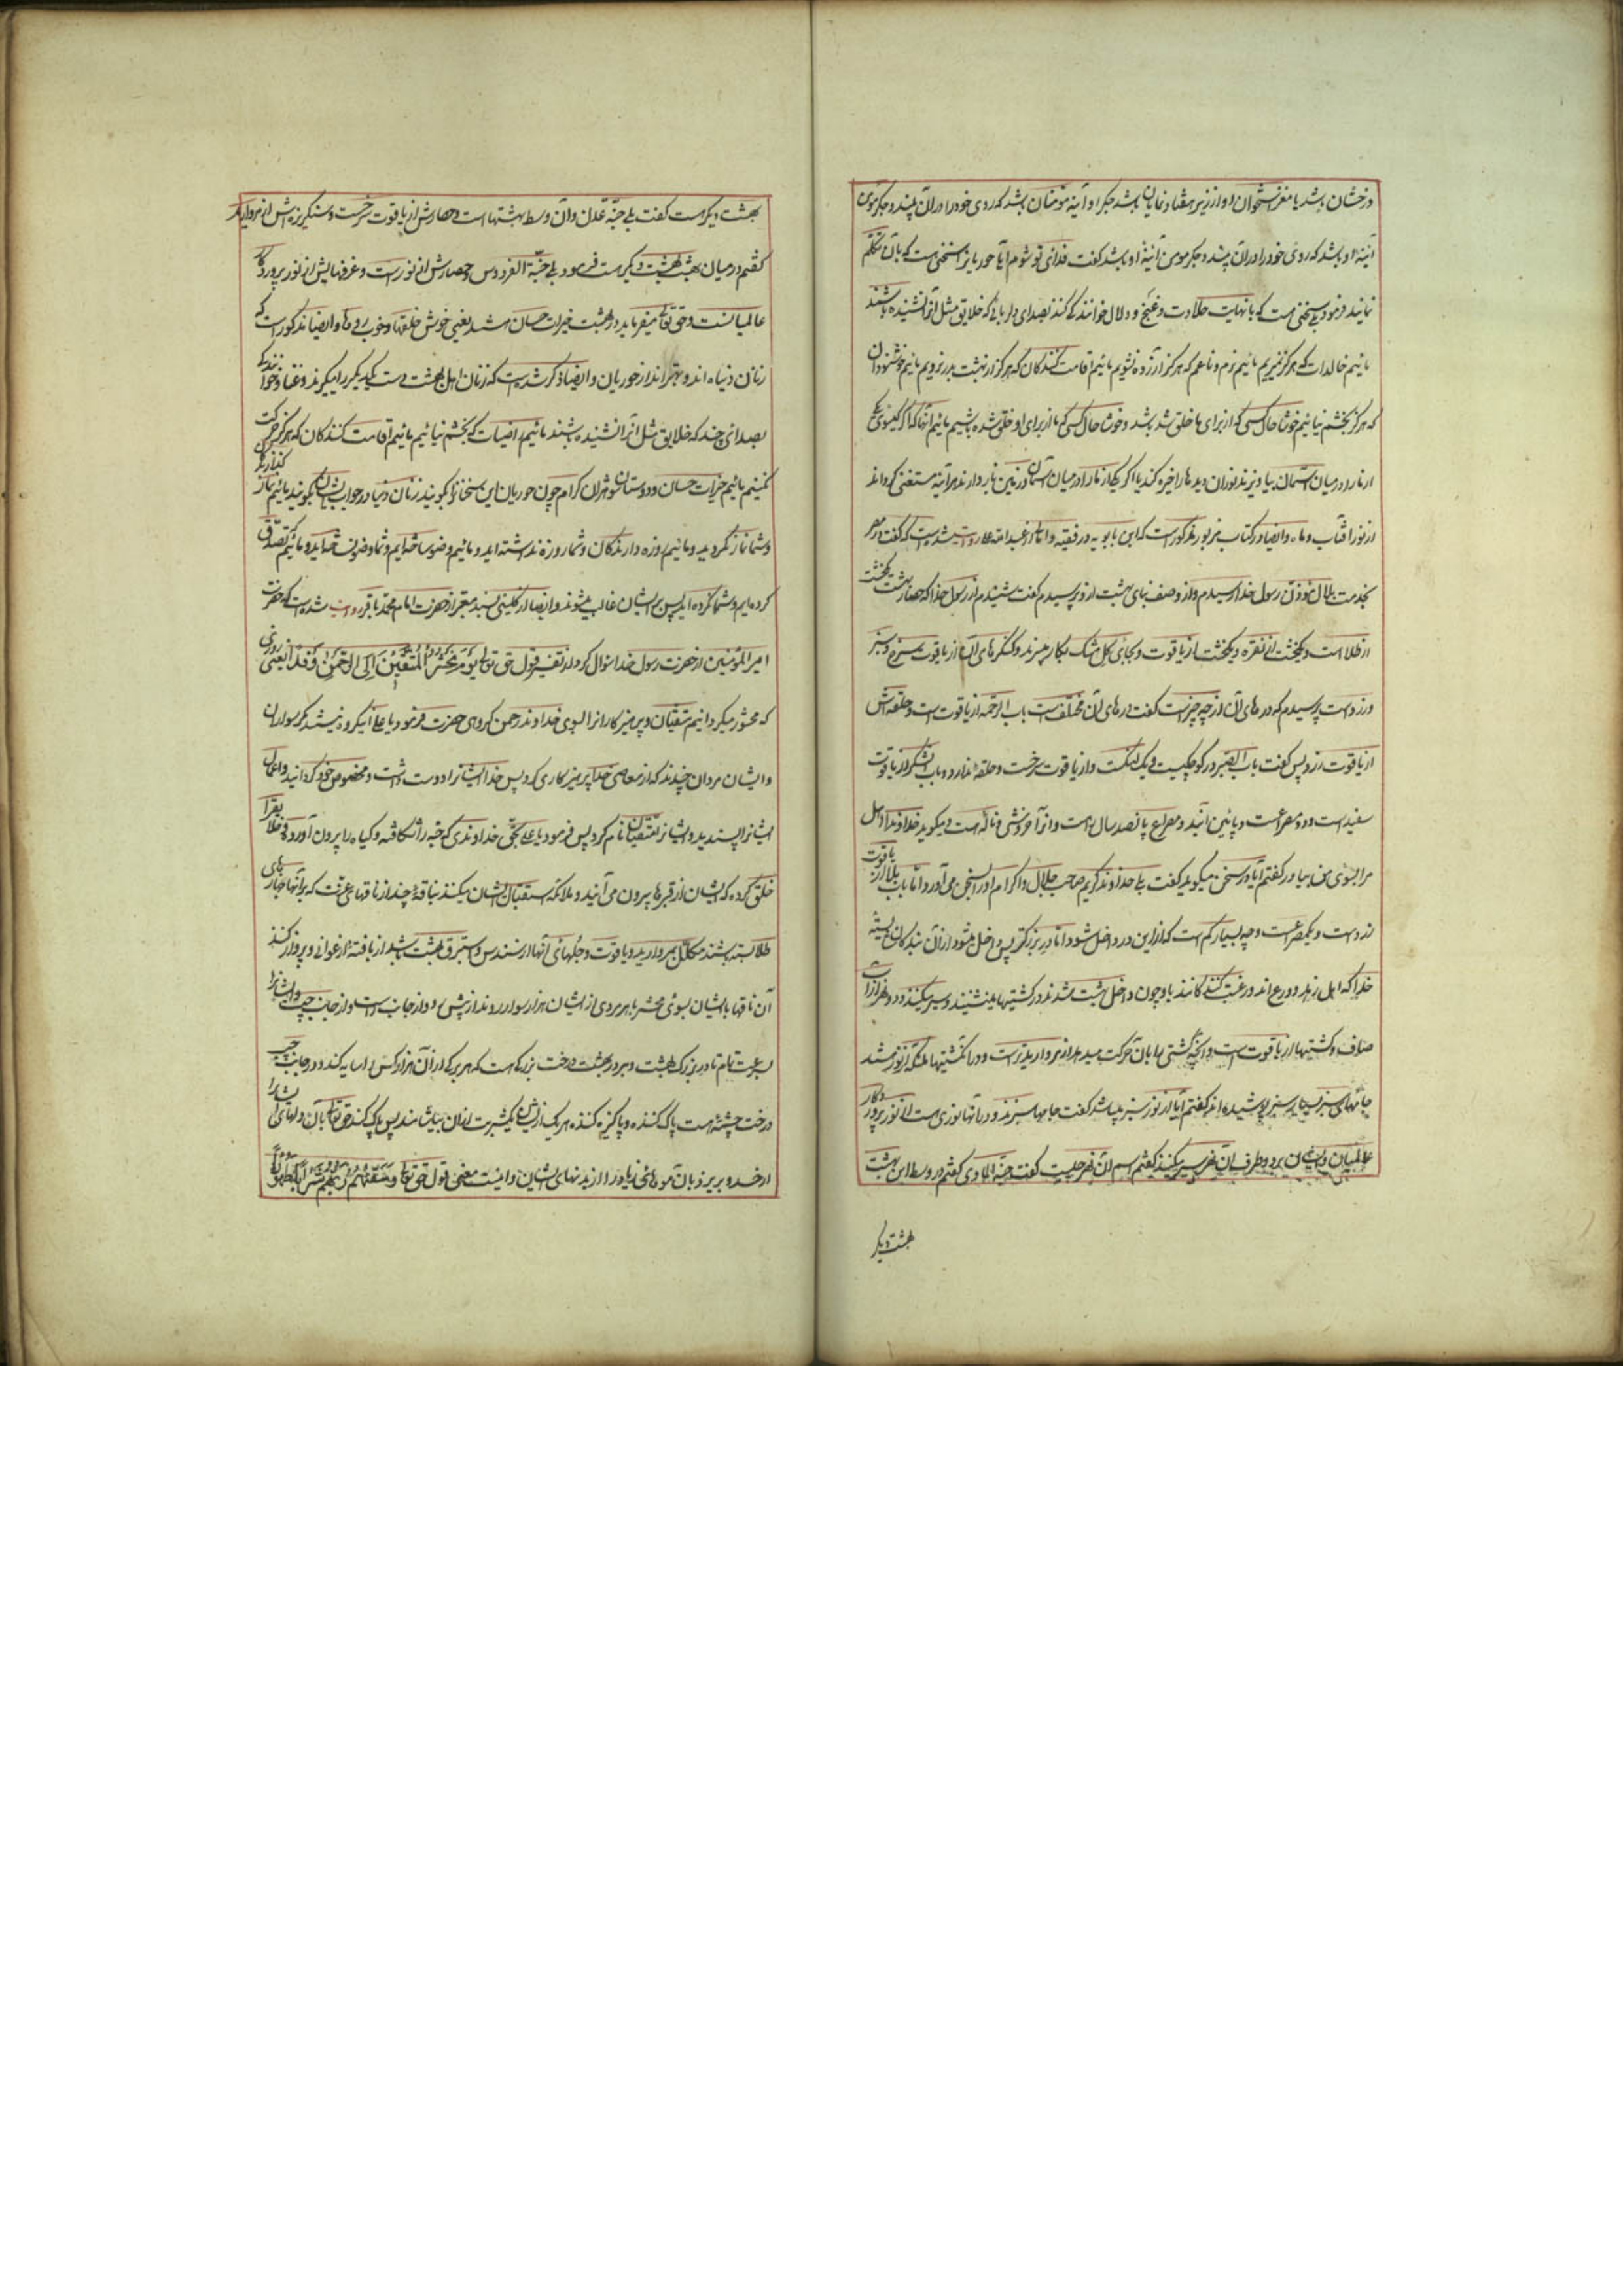 درخشان باشد یا مغز استخوان او از زیر هفتاد نمایان باشد جگر او آینه مؤمنان باشد که روی خود را در آن بیند و جگر مومن
آینهٔ او باشد که روی خود را در آن بیند و جگر مومن آینهٔ او باشد گفت فدای تو شوم آیا حوریانرا سخنی هست که بآن تکلم
نمایند فرمود بلی سخنی هست که با نهایت حلاوت و غنج و دلال خوانندگی کنند بصدای دلربائی که خلایق مثل آنرا نشنیده باشند
مائیم خالدات که هرگز نمیریم مائیم نرم و ناعم که هرگز آزرده نشویم مائیم اقامت کنندگان که هرگز از بهشت بدر نرویم مائیم خوشنودان
که هرگز بخشم نیائیم خوشا حال کسی که از برای ما خلق شده باشد و خوشا حال کسی که ما از برای او خلق شده باشیم مائیم آنها که اگر گیسوی یکی
از ما را در میان آسمان بیاویزند نور آن دیدها را خیره کند یا اگر یکی از ما را در میان آسمان و زمین بدارند هر آینه مستغنی گرداند
از نور آفتاب و ماه و ایضا در کتاب مزبور مذکور است که ابن بابویه در فقیه و امالی از عبد الله علی روایت شده است که گفت در مصر
بخدمت بلال مؤذن رسول خدا رسیدم و از وصف بنای بهشت از او پرسیدم گفت شنیدم از رسول خدا که حصار بهشت یکخشت
از طلا است و یکخشت از نقره و یکخشت از یاقوت و بجای گل مشک بکار میبرند و کنگره‌های آن از یاقوت سرخ و سبز
و زرد است پرسیدم که درهای آن از چه چیز است گفت درهای آن مختلف است باب الرحمه از یاقوت است و حلقه‌اش
از یاقوت زرد پس گفت باب الصبر در کوچکیست یک لنگست و از یاقوت سرخست و حلقه ندارد و باب الشکر از یاقوت
سفید است و دو مصراعست و مابین آنها دو مصراع پانصد سال راه است و آنرا خروش و ناله است میگوید خداوندا اهل
مرا بسوی من بیاور گفتم آیا در سخن میگوید گفت بلی خداوند کریم صاحب جلال و اکرام او را بسخن می‌آورد و اما باب بلا از یاقوت
زرد است و یکمصراعست و چه بسیار کم است که از این در داخل شود و اما در بزرگتر پس داخل میشود از آن بندگان شایسته
خدا که اهل زهد و ورع‌اند و رغبت کنندگانند باو چون داخل بهشت شدند در کشتیها مینشینند و سیر میکنند در دو نهر از آب
صاف و کشتیها از یاقوت است و آنچه کشتی‌ها بآن حرکت میدهند از مروارید است و در آن کشتیها ملائکه از نور هستند
جامهای سبز بسیار سبز پوشیده‌اند گفتم آیا از نور سبز میباشد گفت جامها سبزند و در آنها نوری هست از نور پروردگار
عالمیان و ایشان بر دو طرف آن نهر سیر میکنند گفتم اسم آن نهر چیست گفت جنة المأوی گفتم در وسط این بهشت
بهشت دیگر
بهشت دیگر هست گفت بلی جنّة عدن و آن وسط بهشتها است و حصارش از یاقوت سرخست و سنگریزه‌اش از مروارید
گفتم در میان بهشت بهشت دیگر هست فرمود بلی جنّة الفردوس و حصارش از نور است و غرفهایش از نور پروردگار
عالمیانست و حق تعالی میفرماید در بهشت خیرات حسان هستند یعنی خوش خلقها و خوب رویها و ایضا مذکور است که
زنان دنیا‌ه‌اند و بهترند از حوریان و ایضا ذکر شده است که زنان اهل بهشت دست یکدیگر را میگیرند و غنا و خوانندگی
بصدائی چند که خلایق مثل آنرا نشنیده باشند مائیم راضیات که بخشم نیائیم مائیم اقامت کنندگان که هرگز حرکت
نکنیم مائیم خیرات حسان و دوستان شوهران کرام چون حوریان این سخنانرا گویند زنان دنیا در جواب ایشان گویند مائیم نماز گذارندگان
و شما نماز نکردید و مائیم روزه دارندگان و شما روزه نداشته‌اید و مائیم وضو ساخته‌ایم و شما وضو نساخته‌اید و مائیم تصدّق
کرده‌ایم و شما نکرده‌اید پس بر ایشان غالب میشوند و ایضا از کلینی بسند معتبر از حضرت امام محمد باقر روایت شده است که حضرت
امیر المؤمنین از حضرت رسول خدا سؤال کرد از تفسیر قول حق تعالی یَوْمَ نَحْشُرُ الْمُتَّقِینَ اِلَی الرَّحْمنِ وَفْداً یعنی روزی
که محشور میگردانیم متقیان و پرهیزکارانرا بسوی خداوند رحمن گروهی حضرت فرمود یا علی آنگروه نیستند مگر سواران
و ایشان مردان چندند که از معاصی خدا پرهیزکاری کردند پس خدا ایشانرا دوست داشت و مخصوص خود گردانید و اعمال
ایشانرا پسندید و ایشانرا متقیان نام کرد پس فرمود یا علی بحق خداوندی که حبّه را شکافته و گیاه را بیرون آورده و خلایق را
خلق کرده که ایشان از قبرها بیرون می‌آیند و ملائکه استقبال ایشان میکنند بناقهٔ چند از ناقهای عزت که بر آنها جهازهای
طلا بسته باشند مکلّل بمروارید و یاقوت و جلهای آنها از سندس و استبرق بهشت باشد از بافتهٔ ارغوانی و پرواز کنند
آن ناقها با ایشان بسوی محشر با هر مردی از ایشان هزار سوار روند از پیش و از جانب راست و از جانب چپ و ایشانرا
بسرعت تمام تا در بزرگ بهشت و بر در بهشت درخت بزرگی است که هر برگی از آن هزار کس را سایه کند و در جانب چپ
درخت چشمهٔ هست پاک کننده و پاکیزه کننده هر یک از ایشان یکشربت از آن بیاشامند پس پاک کند حق تعالی بآن دلهای ایشانرا
از حسد و بریزد بآن موهای زیاد را از بدنهای ایشان و اینست معنی قول حق تعالی وَ سَقیهُمْ رَبُّهُمْ شَراباً طَهُوراً